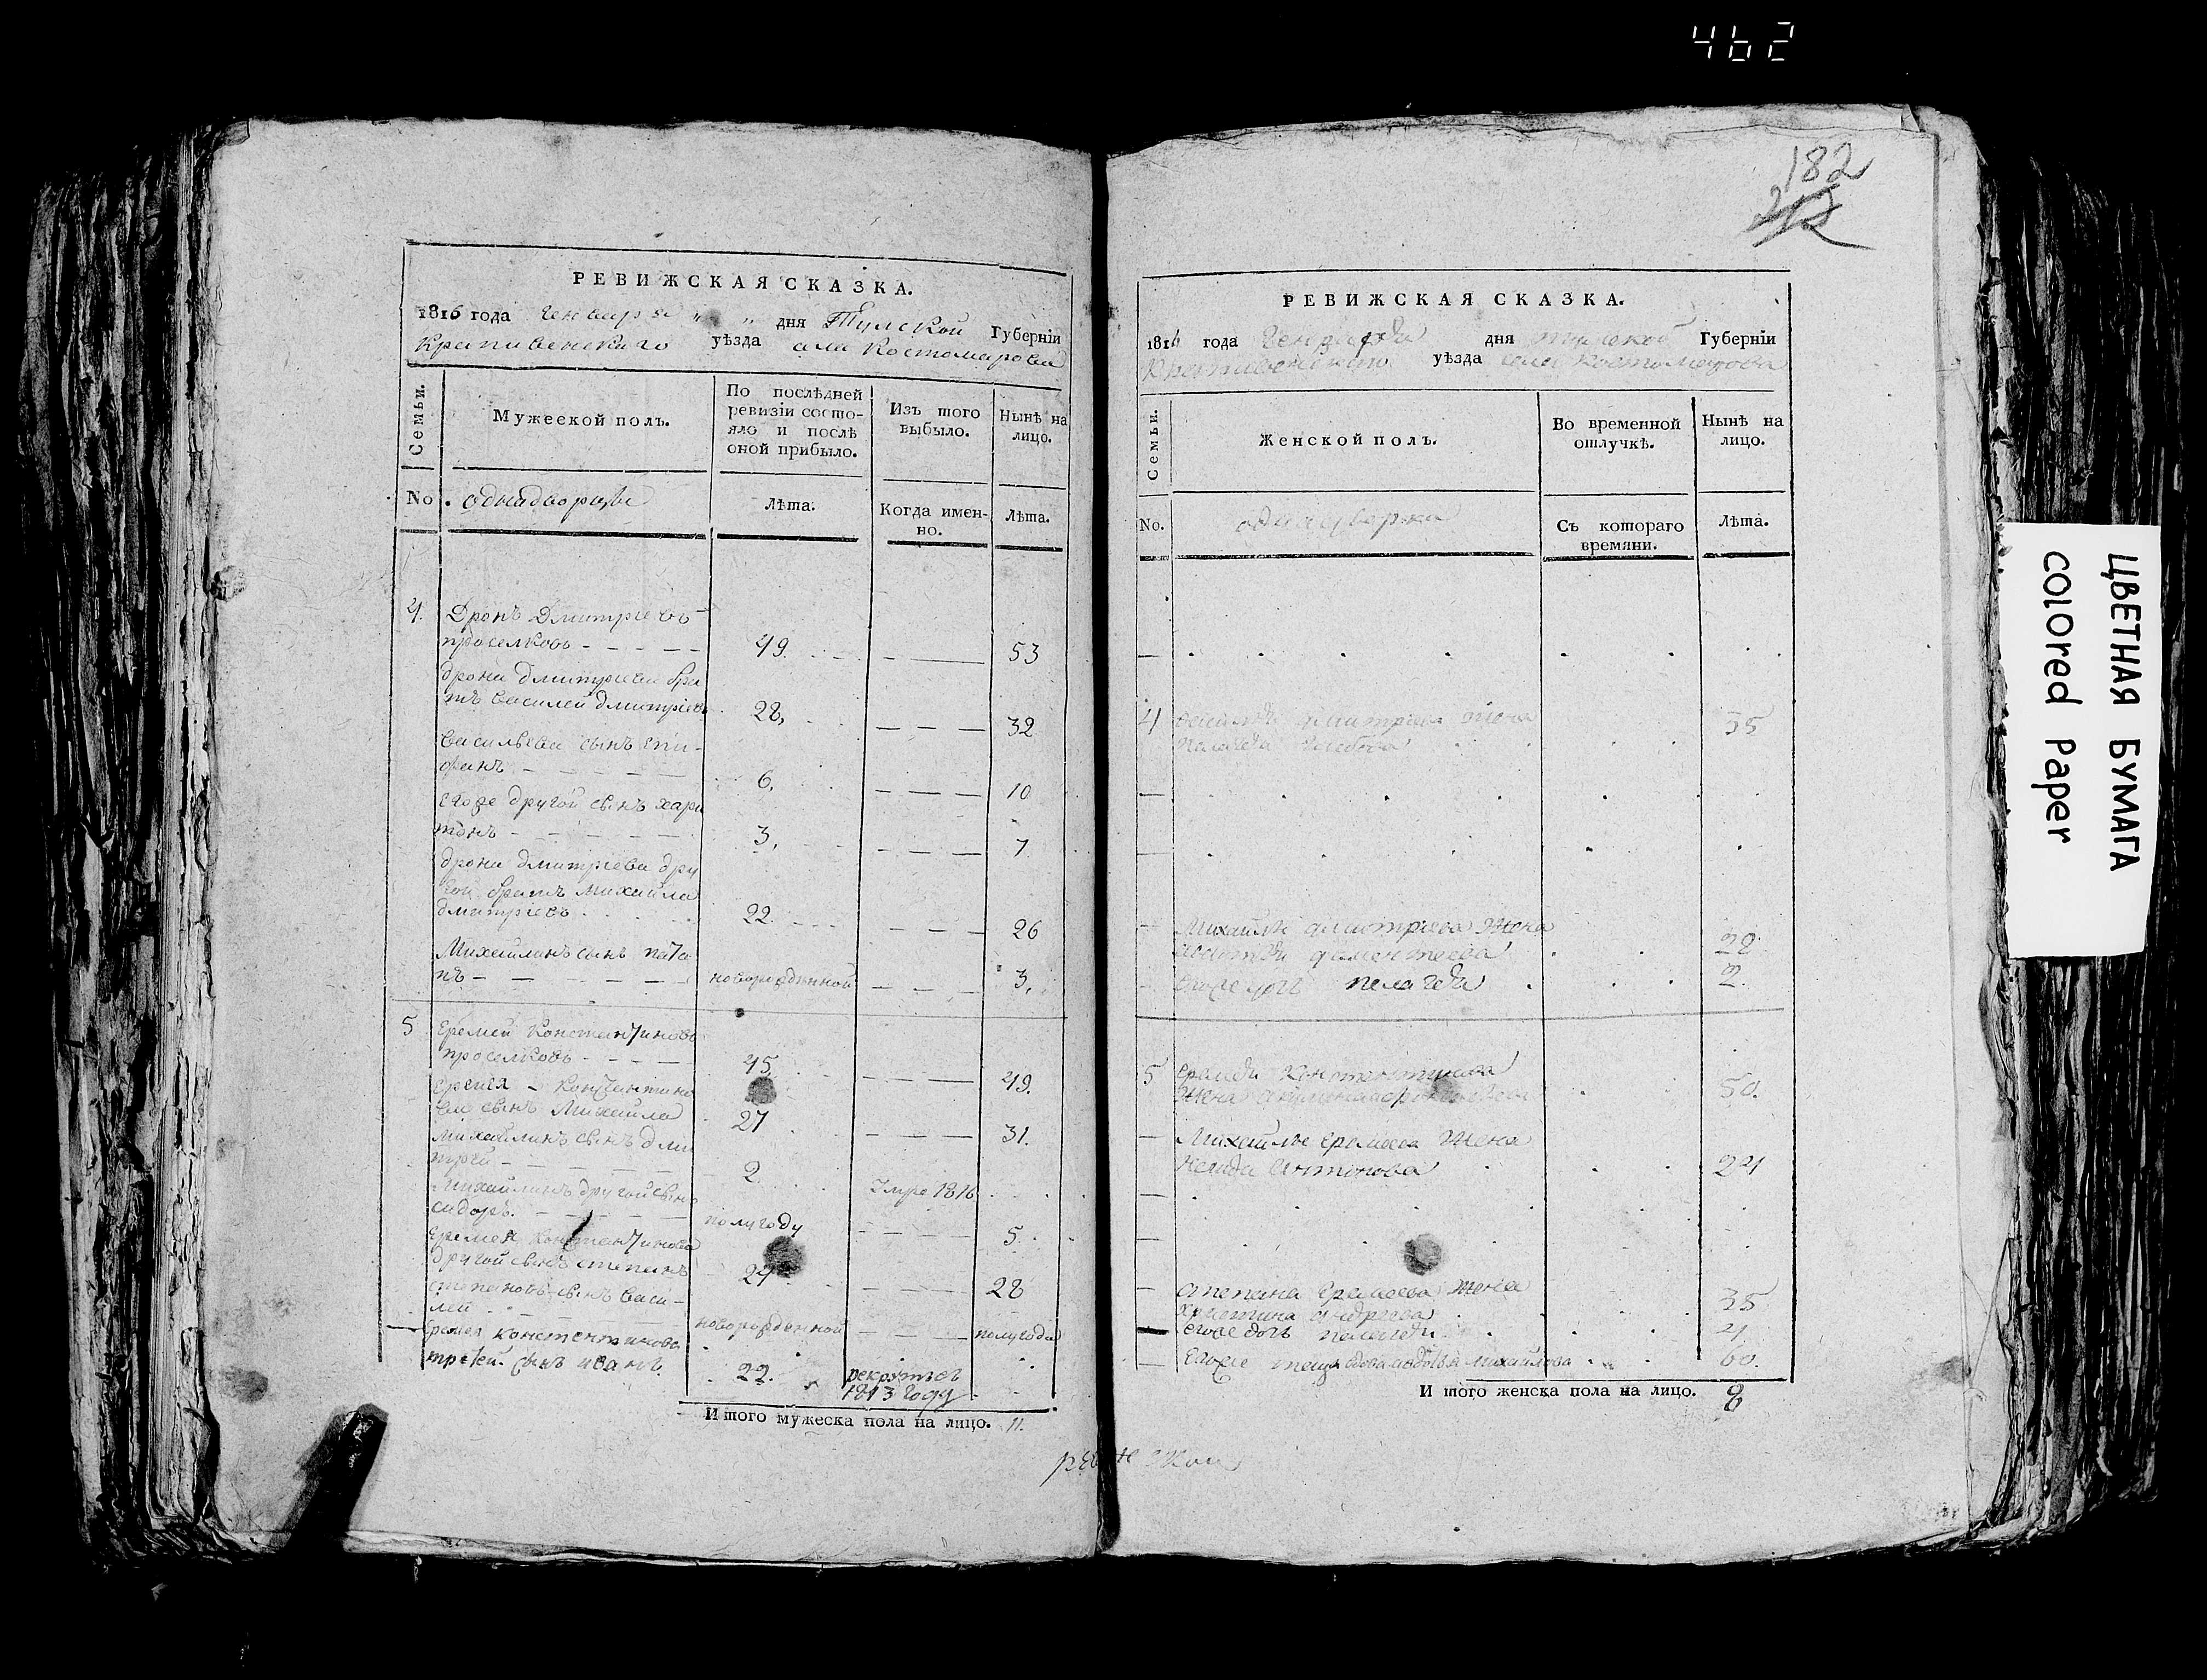 462
182
РЕВИЖСКАЯ СКАЗКА.
1816 года Генваря „ „ дня Тулской Губерніи
Крапивенскаго уѣзда села Костомарова
Семьи.
Мужеской полъ.
По послѣдней ревизіи состо-
яло и послѣ
оной прибыло.
Изъ того
выбыло.
Нынѣ на
лицо.
No. однадворцы
лѣта.
Когда имен-
но.
Лѣта.
4. Дронъ Дмитріевъ
проселковъ 49. 53
дрона дмитриева бра
тъ василей дмитріевъ 28, 32
васильева сынъ епи-
фанъ 6, 10
егоже другой сынъ хари
тонъ 3, 7
дрона дмитріева дру
гои братъ михайла
дмитріевъ 22 26
Михайлинъ сынъ пата
пъ новорожденной 3.
5 Еремей Константиновъ
проселковъ 45. 49.
еремея Константино
ва сынъ Михайла 27 31.
михайлинъ сынъ дми
трей 2 1816
Михайлинъ другой сынъ
сидоръ. полугоду 5.
Еремея Константинова
другой сынъ степанъ 24 28
степановъ сынъ васи-
лей новорожденной полугода
Еремея константинова
третей сынъ иванъ. 22. рекрутъ
1813 году
Итого мужеска пола на лицо. 11.
РЕВИЖСКАЯ СКАЗКА.
1816 года Генваря дня тулской Губерніи
Крапивенскаго уѣзда села костомарова
Семьи.
Женской полъ.
Во временной
отлучкѣ.
Нынѣ на
лицо.
No. однадворки
Съ котораго
времяни.
лѣта.
4 василья дмитриева жена
пелагея глебова 35
Михайлы дмитриева жена
28.
егоже дочь пелагея 2.
5 еремея Константинова
жена 50.
Михайлы еремеева жена
Антонова 24
степана еремеева жена
христина андреева 35
егоже дочь пелагея 4.
Егоже теща вдова михайлова 60.
И того женска пола на лицо. 8
ЦВЕТНАЯ БУМАГА
COLORED PAPER